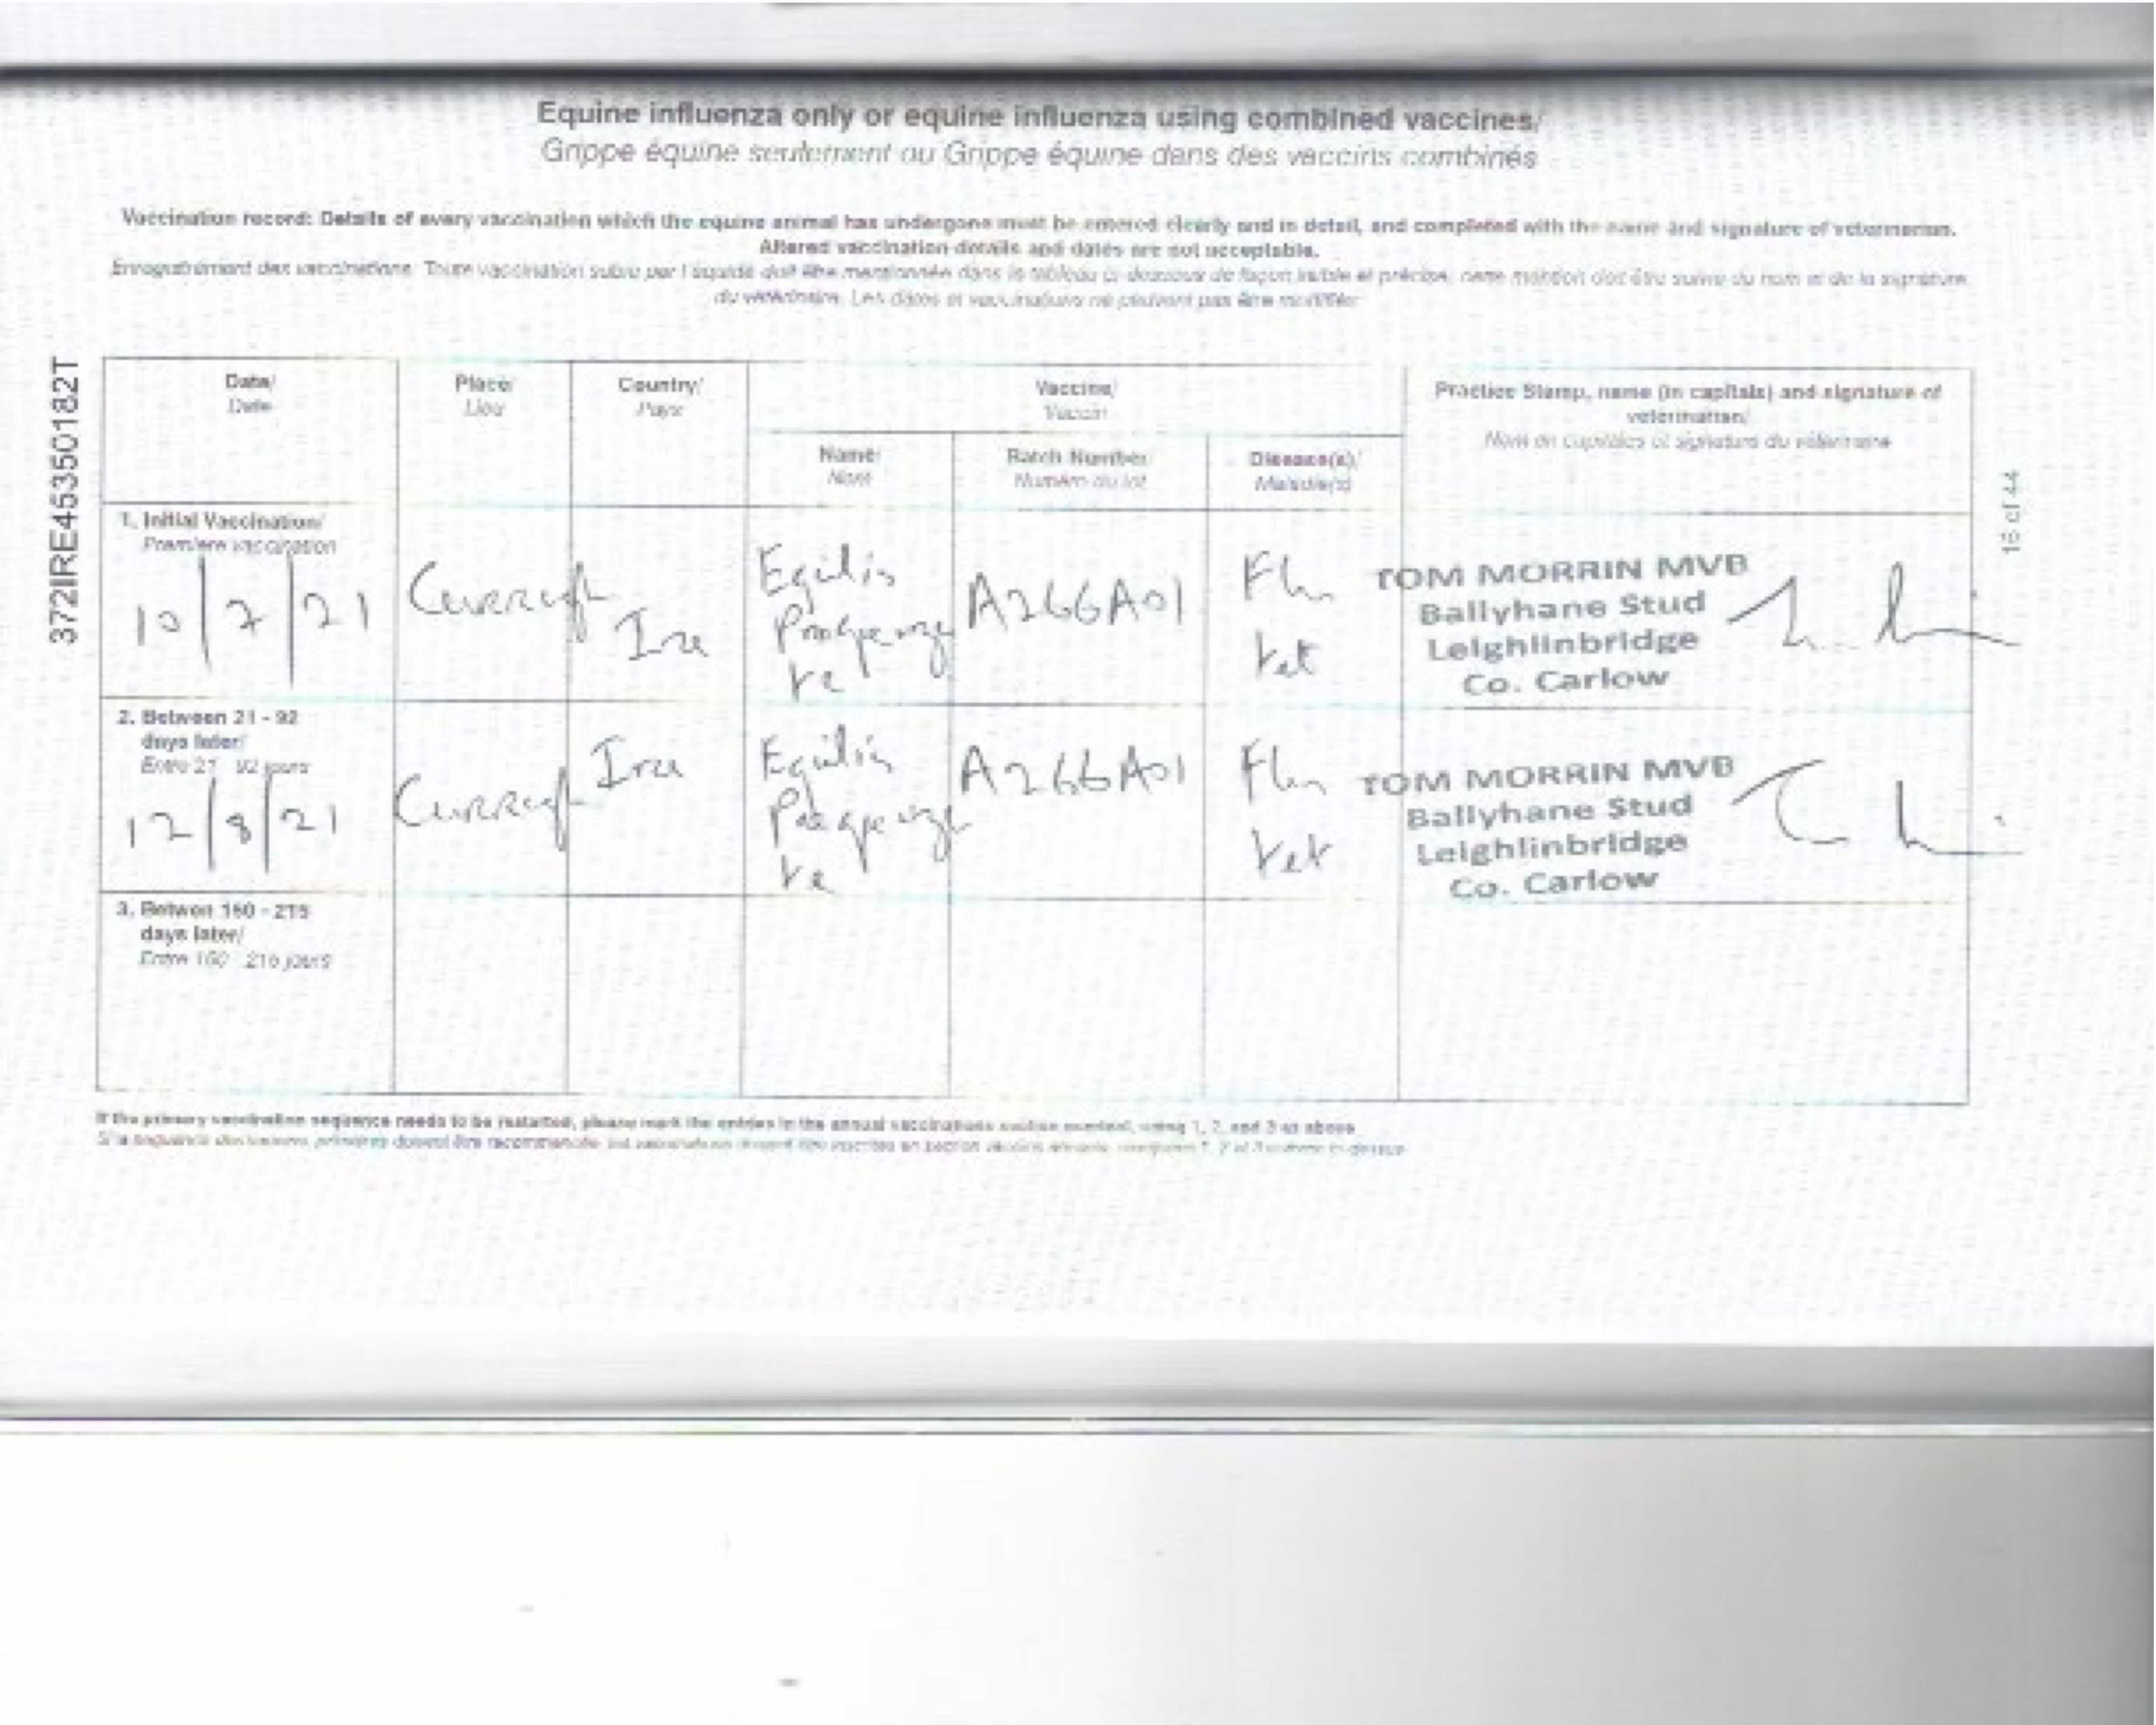 Equine influenza only or equine influenza using combined vaccines/
Grippe équine seulement ou Grippe équine dans des vaccins combinés
Vaccination record: Details of every vaccination which the equine animal has undergone must be entered clearly and in detail, and completed with the name and signature of veterinarian.
Altered vaccination details and dates are not acceptable.
Enregistrement des vaccinations. Toute vaccination subie par l'équidé doit être mentionnée dans le tableau ci-dessous de façon lisible et précise, cette mention doit être suivie du nom et de la signature
du vétérinaire. Les dates et vaccinations ne peuvent pas être modifiées
372IRE45350182T
Date/
Date
Place/
Lieu
Country/
Pays
Vaccine/
Vaccin
Practice Stamp, name (in capitals) and signature of
veterinarian/
Nom en capitales et signature du vétérinaire
Name/
Nom
Batch Number/
Numéro du lot
Disease(s)/
Maladie(s)
16 of 44
1. Initial Vaccination/
Première vaccination
10/7/21
Curragh
Ire
Equilis
Prequenza
te
A266A01
Flu
tet
TOM MORRIN MVB
Ballyhane Stud
Leighlinbridge
Co. Carlow
2. Between 21 - 92
days later/
Entre 21 - 92 jours
12/8/21
Curragh
Ire
Equilis
Prequenza
te
A266A01
Flu
tet
TOM MORRIN MVB
Ballyhane Stud
Leighlinbridge
Co. Carlow
3. Betwen 150 - 215
days later/
Entre 150 - 215 jours
If the primary vaccination sequence needs to be restarted, please mark the entries in the annual vaccinations section overleaf, using 1, 2, and 3 as above